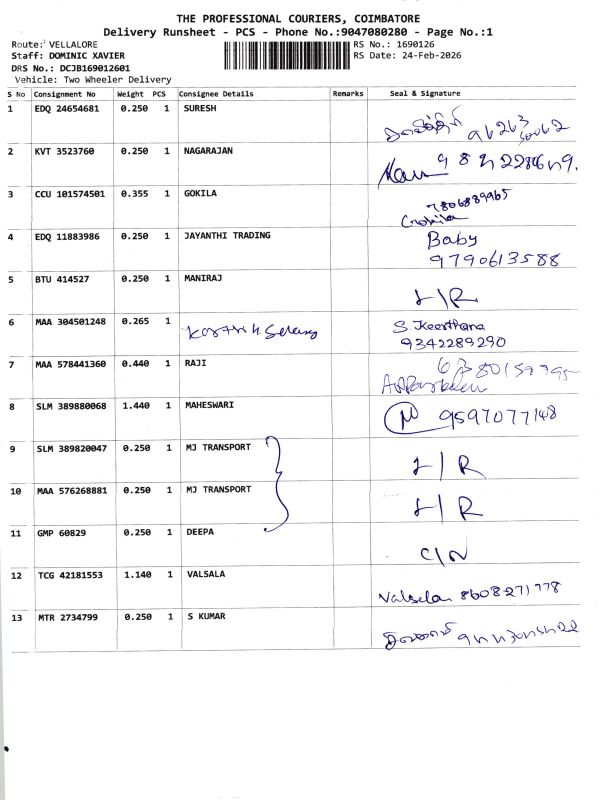 THE PROFESSIONAL COURIERS, COIMBATORE
Delivery Runsheet - PCS - Phone No.:9047080280 - Page No.:1
Route: VELLALORE RS No.: 1690126
Staff: DOMINIC XAVIER RS Date: 24-Feb-2026
DRS No.: DCJB169012601
Vehicle: Two Wheeler Delivery
S No Consignment No Weight PCS Consignee Details Remarks Seal & Signature
1 EDQ 24654681 0.250 1 SURESH
2 KVT 3523760 0.250 1 NAGARAJAN
3 CCU 101574501 0.355 1 GOKILA 7806889965
Gokila
4 EDQ 11883986 0.250 1 JAYANTHI TRADING Baby
9790613588
5 BTU 414527 0.250 1 MANIRAJ L/R
6 MAA 304501248 0.265 1 S. Keerthana
9342289290
7 MAA 578441360 0.440 1 RAJI
8 SLM 389880068 1.440 1 MAHESWARI 9597077148
9 SLM 389820047 0.250 1 MJ TRANSPORT L/R
10 MAA 576268881 0.250 1 MJ TRANSPORT L/R
11 GMP 60829 0.250 1 DEEPA C/N
12 TCG 42181553 1.140 1 VALSALA Valsala 8608271778
13 MTR 2734799 0.250 1 S KUMAR